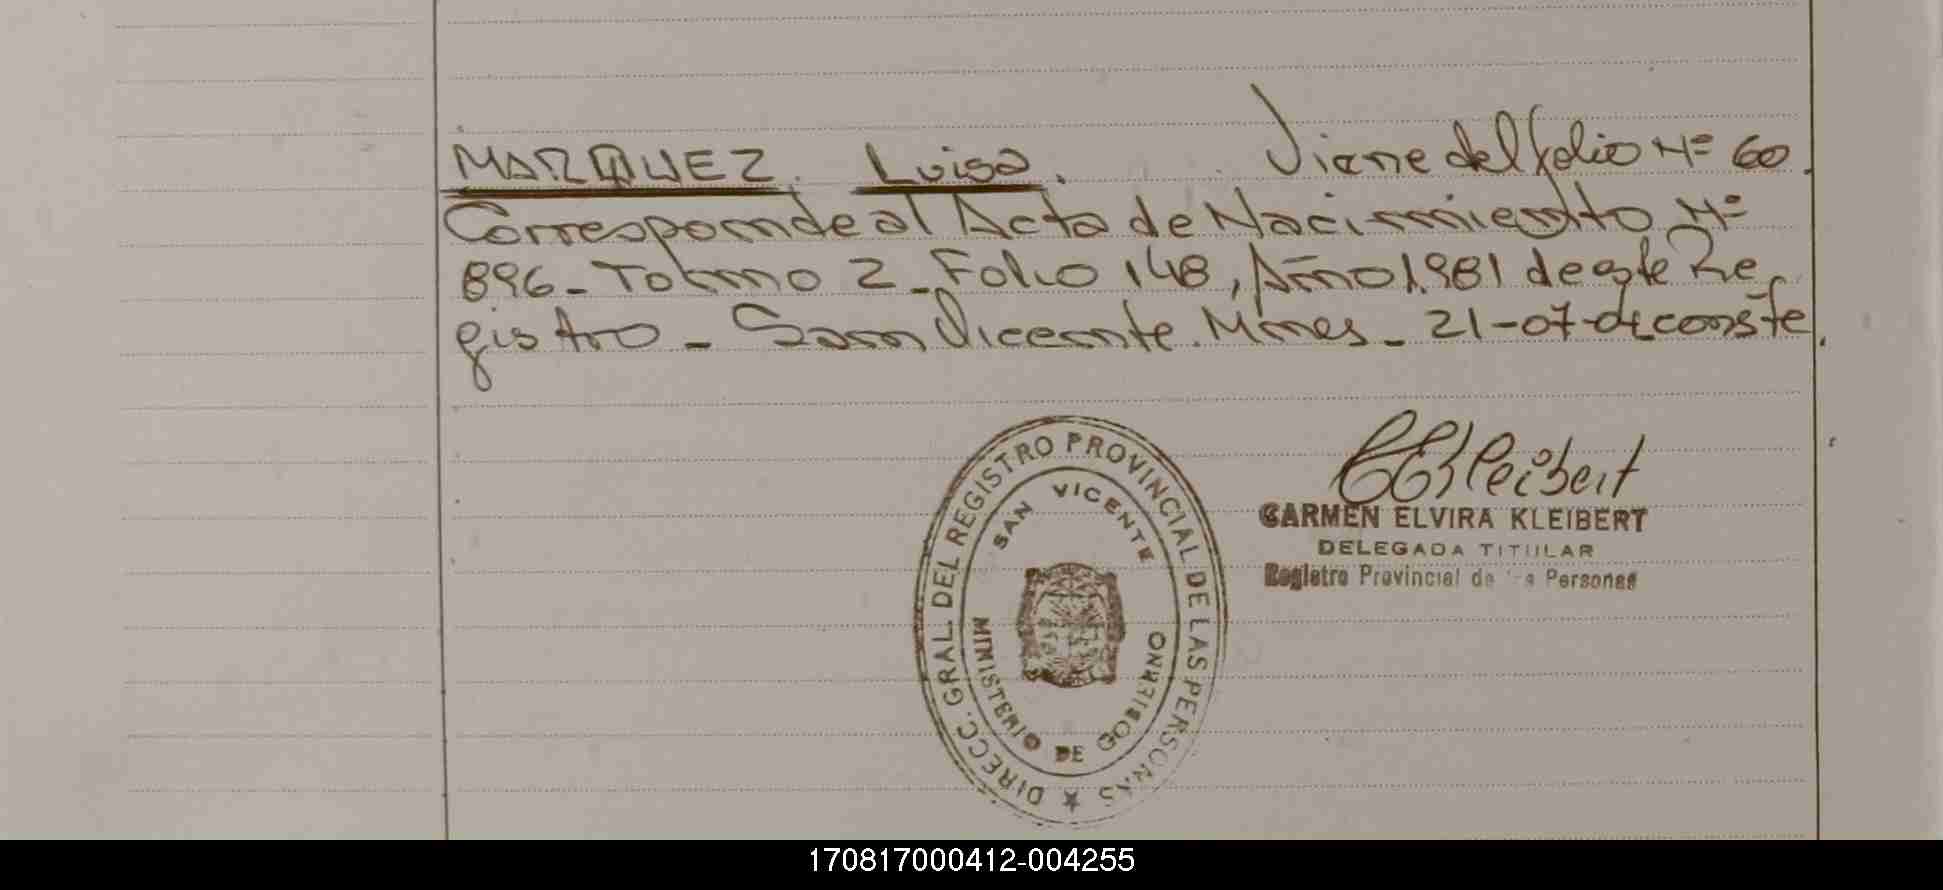 MARQUEZ. Luisa. Viene del folio Nº 60.
Corresponde al Acta de Nacimiento Nº
896_ Tomo 2_ Folio 148, Año 1.981 de este Re
gistro_ San Vicente. Mnes_ 21-07-04 conste.
CKleibert
CARMEN ELVIRA KLEIBERT
DELEGADA TITULAR
Registro Provincial de las Personas
DIRECC. GRAL. DEL REGISTRO PROVINCIAL DE LAS PERSONAS
SAN VICENTE
MINISTERIO DE GOBIERNO
170817000412-004255